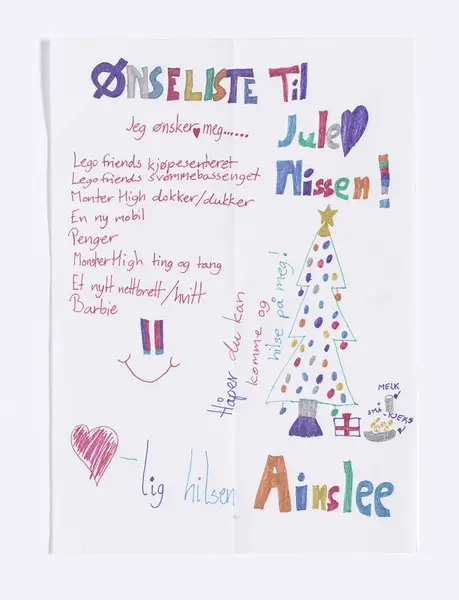 ØNSELISTE Til
Jule
Nissen!
Jeg ønsker meg......
Lego friends kjøpesenteret
Lego friends svømmebassenget
Monter High dokker/dukker
En ny mobil
Penger
MonsterHigh ting og tang
Et nytt nettbrett/hvitt
Barbie
Håper du kan
komme og
hilse på meg!
MELK
SMÅ
KJEKS
-lig hilsen Ainslee